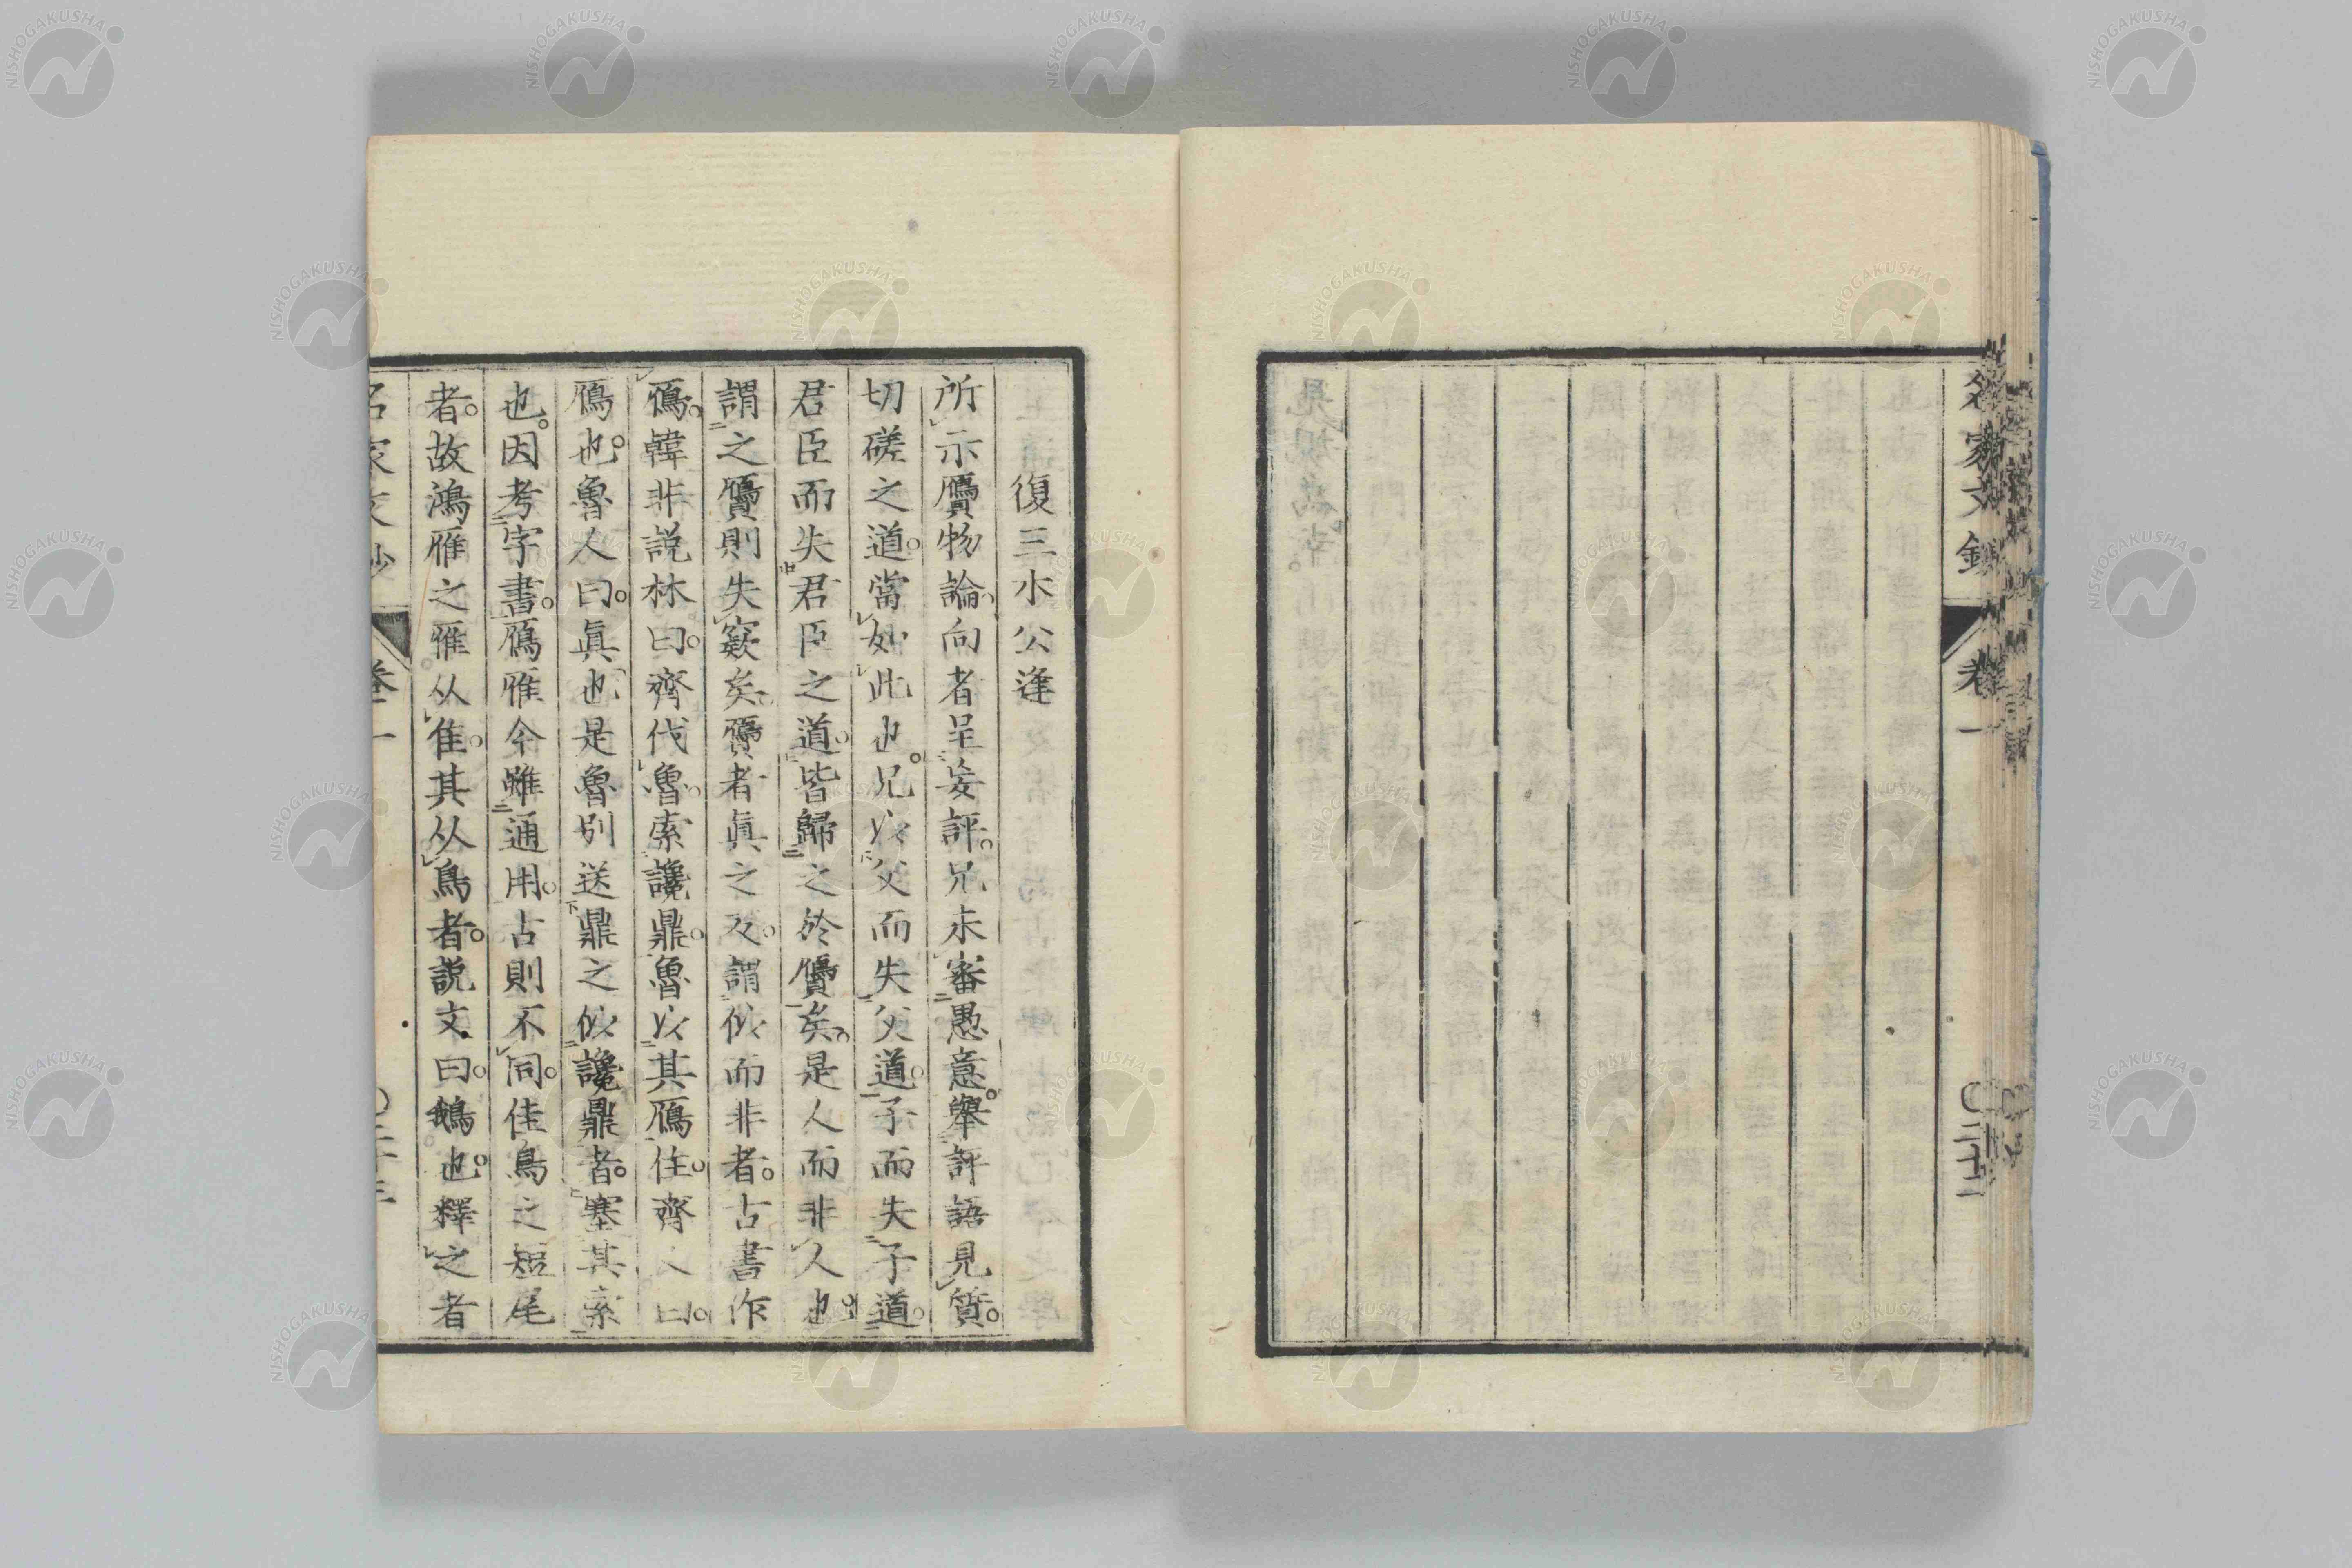 名家文鈔 卷一
復三水公逢
所示贗物論向者呈妄評兄未審愚意舉評語見質
切磋之道當如此也兄以父而失父道子而失子道
君臣而失君臣之道皆歸之於贗矣是人而非人也
謂之贗則失窾矣贗者眞之反謂似而非者古書作
鴈韓非説林曰齊伐魯索讒鼎魯以其鴈往齊人曰
鴈也魯人曰眞也是魯別送鼎之似讒鼎者塞其索
也因考字書鴈雁今雖通用古則不同隹鳥之短尾
者故鴻雁之雁从隹其从鳥者説文曰鵝也釋之者
名家文鈔 卷一
NISHOGAKUSHA